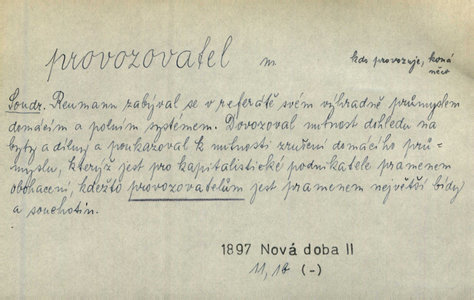 provozovatel m. kdo provozuje, koná
něco
Soudr. Reumann zabýval se v referátě svém výhradně průmyslem
domácím a polním systémem. Dovozoval nutnost dohledu na
byty a dílny a poukazoval k nutnosti zrušení domácího prů-
myslu, kterýž jest pro kapitalistické podnikatele pramenem
obohacení, kdežto provozovatelům jest pramenem největší bídy
a souchotin.
1897 Nová doba II
11, 18 (-)